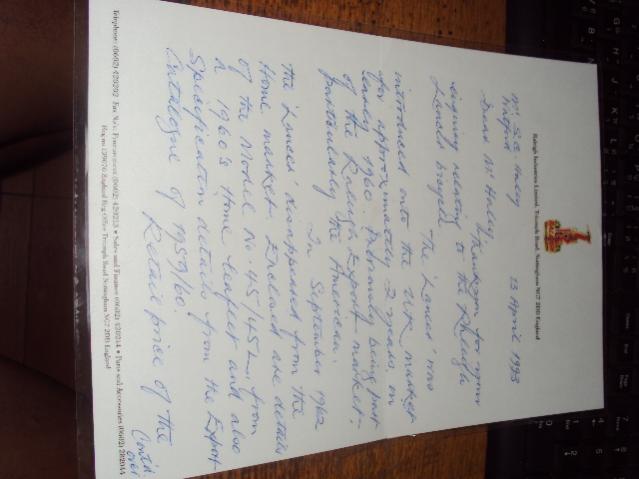 Raleigh Industries Limited, Triumph Road, Nottingham NG7 2DD England
13 April 1993
Mr
Dear Mr
Thankyou for your
enquiry relating to the Raleigh
Lancer bicycle.
The 'Lancer' was
introduced onto the U.K. market
for approximately 2 years, in
early 1960. Primarily being part
of the Raleigh Export market -
particularly the American.
In September 1962
the 'Lancer' disappeared from the
Home market. Enclosed are details
of the Model No 45/45L, from
a 1960's Home leaflet and also
Specification details from the Export
Catalogue of 1959/60.
Retail price of the
Cont'd
over
Telephone: (0602) 420202 Fax No's: Procurement (0602) 420213 • Sales and Finance (0602) 420214 • Parts and Accessories (0602) 282044
Reg. no 1359070 England Reg Office Triumph Road Nottingham NG7 2DD England